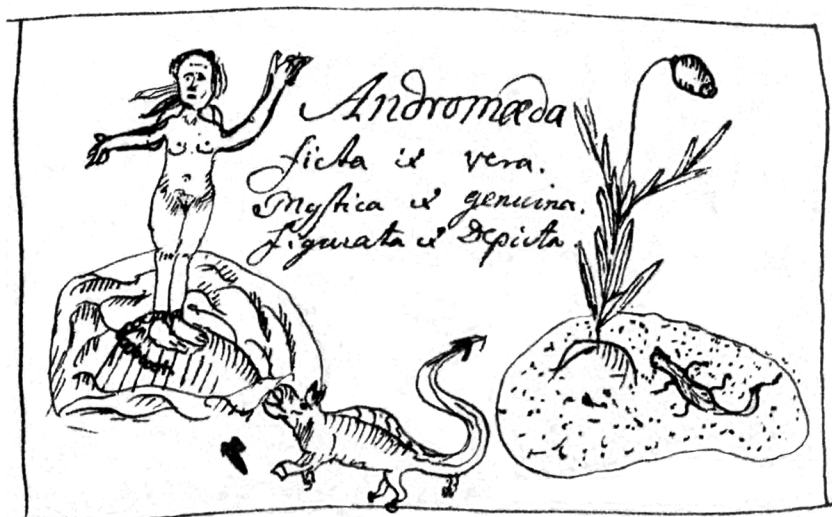 Andromæda
ficta et vera.
Mystica et genuina.
figurata et Depicta.